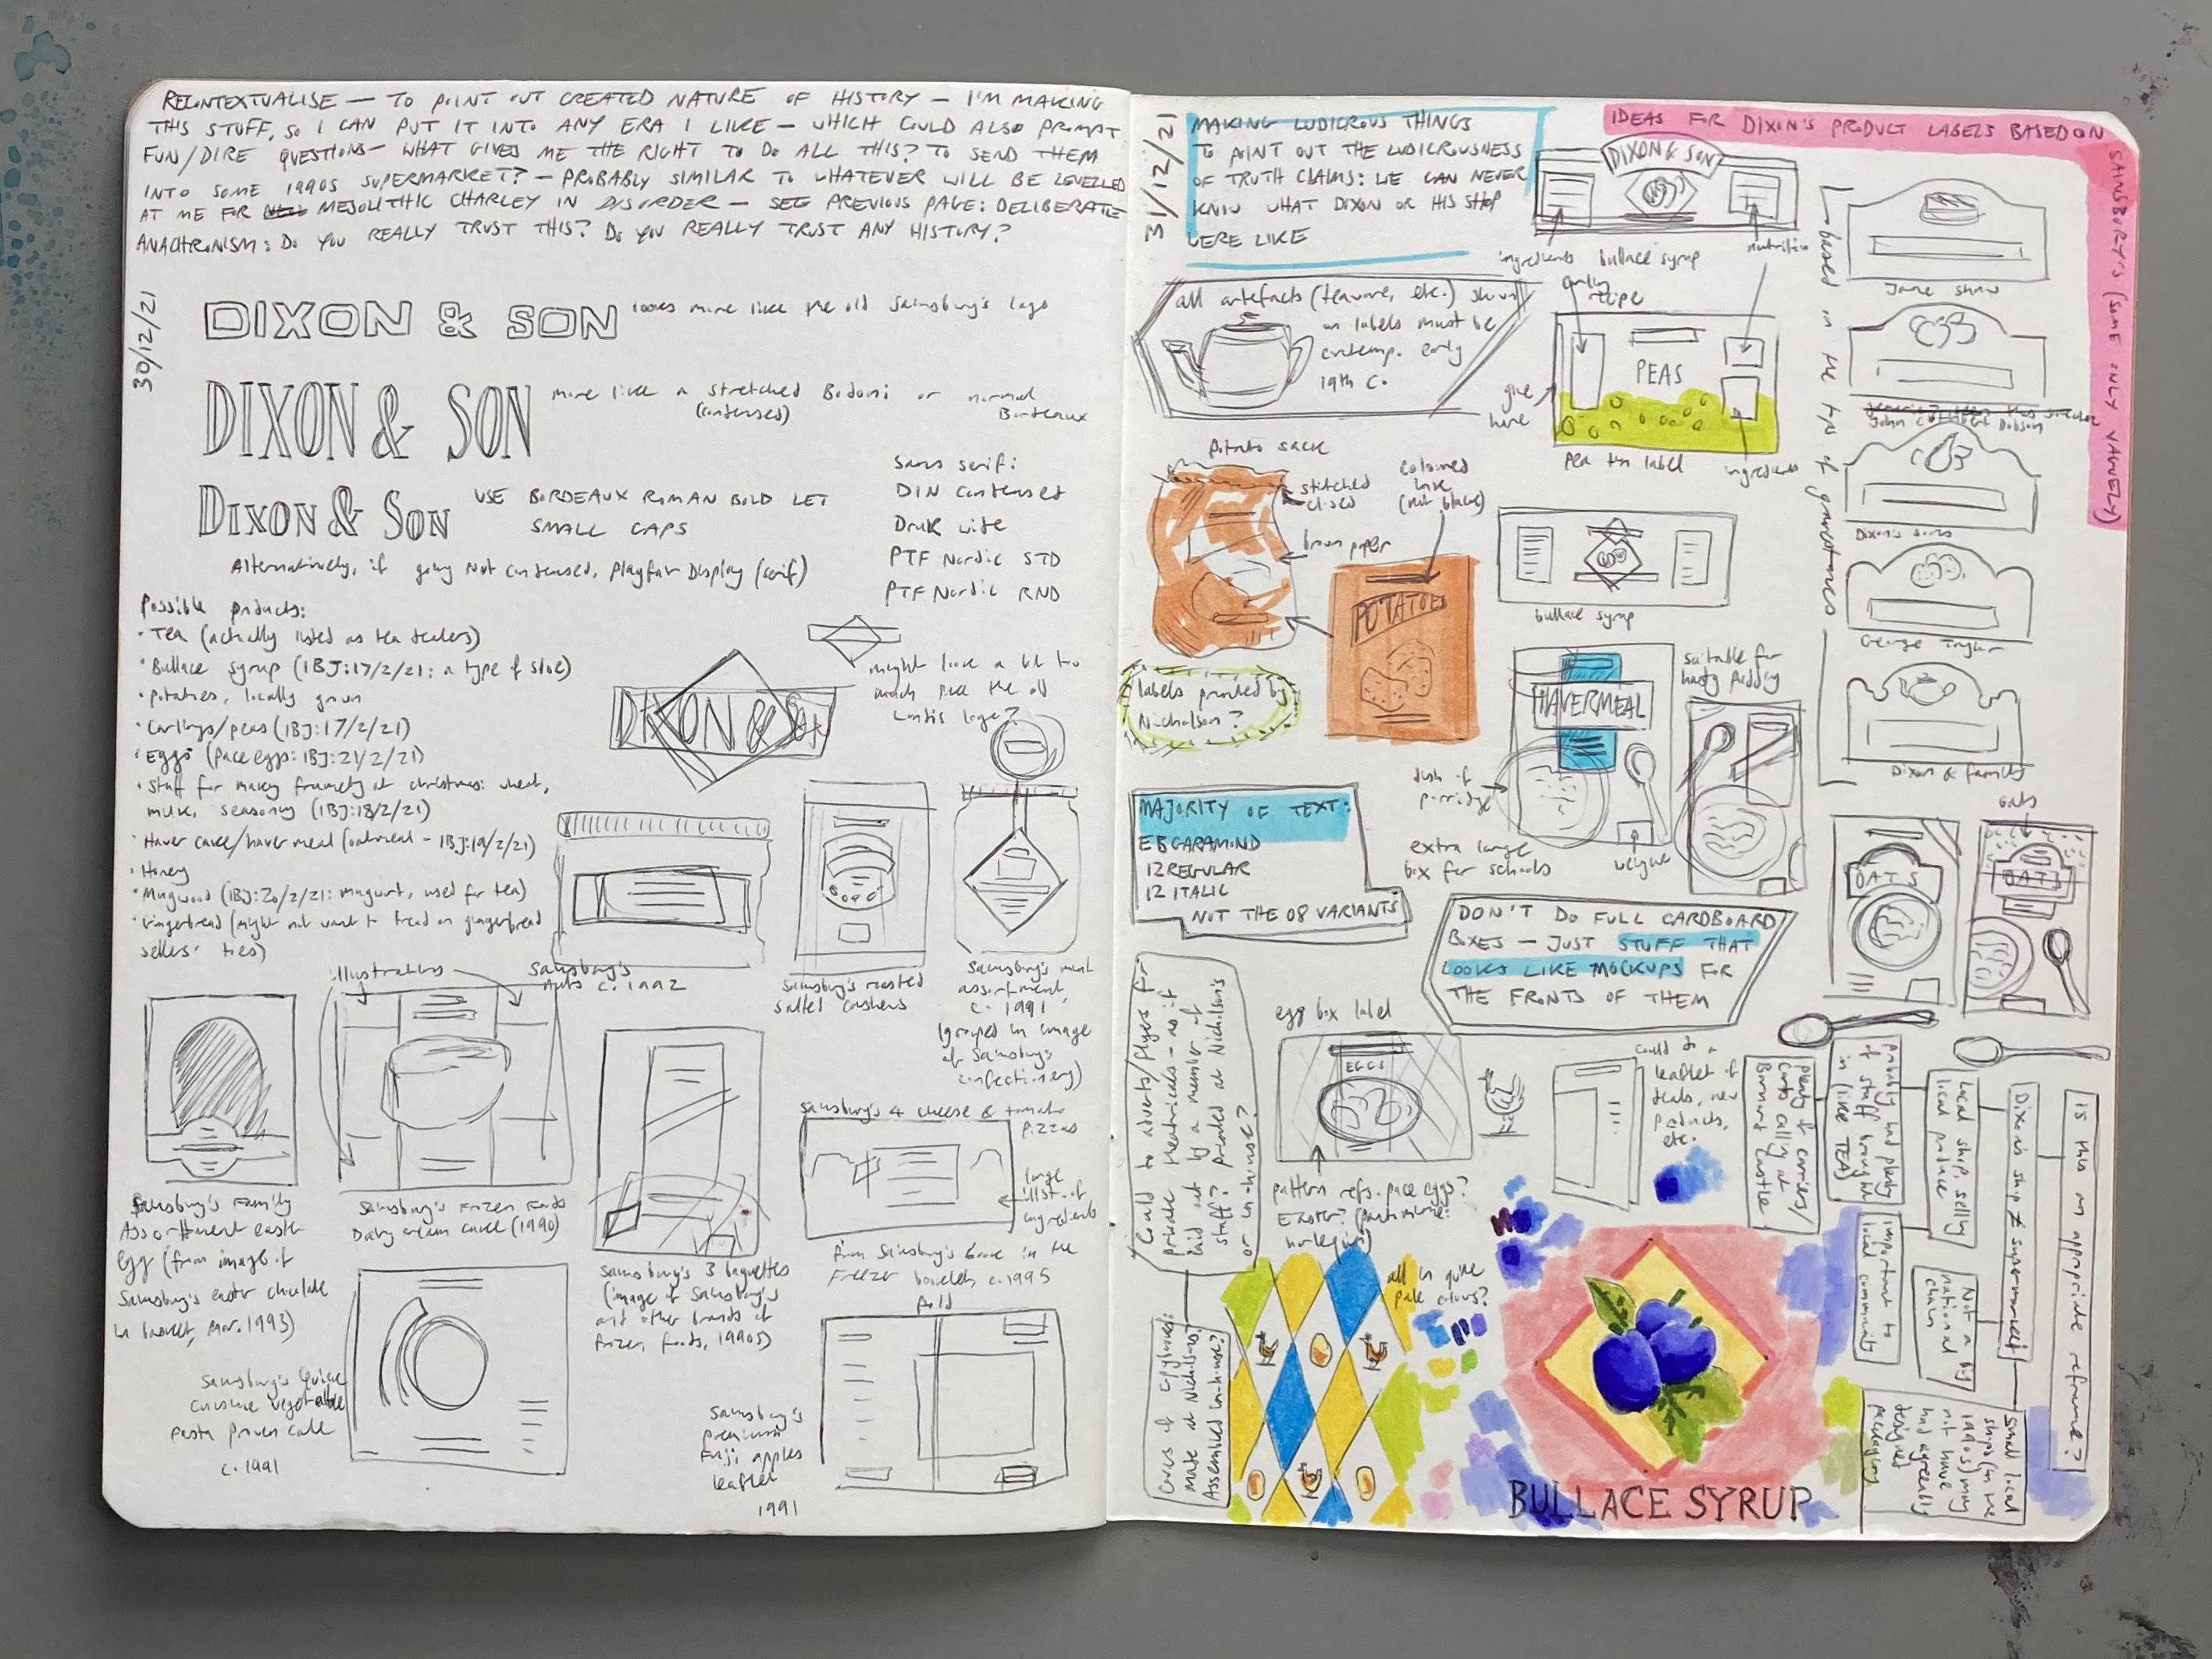 RECONTEXTUALISE — TO POINT OUT CREATED NATURE OF HISTORY — I'M MAKING
THIS STUFF, SO I CAN PUT IT INTO ANY ERA I LIKE — WHICH COULD ALSO PROMPT
FUN/DIRE QUESTIONS — WHAT GIVES ME THE RIGHT TO DO ALL THIS? TO SEND THEM
INTO SOME 1990S SUPERMARKET? — PROBABLY SIMILAR TO WHATEVER WILL BE LEVELLED
AT ME FOR MESOLITHIC CHARLEY IN DISORDER — SEE PREVIOUS PAGE: DELIBERATE
ANACHRONISM: DO YOU REALLY TRUST THIS? DO YOU REALLY TRUST ANY HISTORY?
30/12/21
DIXON & SON
looks more like the old Sainsbury's logo
DIXON & SON
more like a stretched Bodoni or normal
(condensed) Bordeaux
DIXON & SON
USE BORDEAUX ROMAN BOLD LET
SMALL CAPS
Alternatively, if going not condensed, Playfair Display (serif)
Sans serif:
DIN Condensed
Druk Wide
PTF Nordic STD
PTF Nordic RND
Possible products:
· Tea (actually listed as tea dealers)
· Bullace syrup (IBJ:17/2/21: a type of sloe)
· potatoes, locally grown
· Carlings/peas (IBJ:17/2/21)
· Eggs (pace eggs: IBJ:21/2/21)
· Stuff for making frumety at christmas: wheat,
milk, seasoning (IBJ:18/2/21)
· Haver cake/haver meal (oatmeal — IBJ:19/2/21)
· Honey
· Mugwood (IBJ:20/2/21: mugwort, used for tea)
· Gingerbread (might not want to tread on gingerbread
sellers' toes)
DIXON & SON
might look a bit too
much like the old
Londis logo?
Sainsbury's
nuts c.1992
Sainsbury's roasted
salted cashews
Sainsbury's mint
assortment,
c. 1991
(grouped in image
of Sainsbury's
confectionery)
illustrations
Sainsbury's Family
Assortment easter
egg (from image of
Sainsbury's easter chocolate
in basket, Mar. 1993)
Sainsbury's Frozen Foods
Dairy cream cake (1990)
Sainsbury's 3 baguettes
(image of Sainsbury's
and other brands of
frozen foods, 1990s)
Sainsbury's 4 cheese & tomato
pizzas
large
illust. of
ingredients
from Sainsbury's Guide in the
Freezer booklet, c.1995
Sainsbury's Quick
Cuisine vegetable
pasta
c.1991
fold
Sainsbury's
premium
Fuji apples
leaflet
1991
31/12/21
MAKING LUDICROUS THINGS
TO POINT OUT THE LUDICROUSNESS
OF TRUTH CLAIMS: WE CAN NEVER
KNOW WHAT DIXON OR HIS SHOP
WERE LIKE
IDEAS FOR DIXON'S PRODUCT LABELS BASED ON
SAINSBURY'S (SOME ONLY VAGUELY)
DIXON & SON
ingredients
bullace syrup
nutrition
all artefacts (teaware, etc.) shown
on labels must be
contemp. early
19th C.
recipe
PEAS
glue
here
pea tin label
ingredients
based on the tops of gravestones
Jane Shaw
John
Dobson
Dixon's sons
George Taylor
Dixon & family
Potato sack
stitched
closed
brown paper
coloured
line
(not black)
POTATOES
labels printed by
Nicholson?
bullace syrup
HAVERMEAL
suitable for
hasty pudding
dish of
porridge
extra large
box for schools
weight
oats
OATS
OATS
MAJORITY OF TEXT:
EB GARAMOND
12 REGULAR
12 ITALIC
NOT THE 08 VARIANTS
DON'T DO FULL CARDBOARD
BOXES — JUST STUFF THAT
LOOKS LIKE MOCKUPS FOR
THE FRONTS OF THEM
Could do adverts/flyers for
private theatricals — as if
laid out by a member of
stuff? printed at Nicholson's
or in-house?
made at Nicholson's?
Assembled in-house?
egg box label
EGGS
pattern refs. pace eggs?
Easter? (pantomime:
harlequins)
all in quite
pale colours?
could do a
leaflet of
deals, new
products,
etc.
Is this an appropriate reframe?
Dixon's shop ≠ supermarket
Local shop, selling
local produce
probably had plenty
of stuff brought
in (like TEA)
plenty of carriers/
carts calling at
Barnard Castle
Not a big
national
chain
important to
local community
Small local
shops (in the
1990s) may
not have
had agreeably
designed
packaging
BULLACE SYRUP